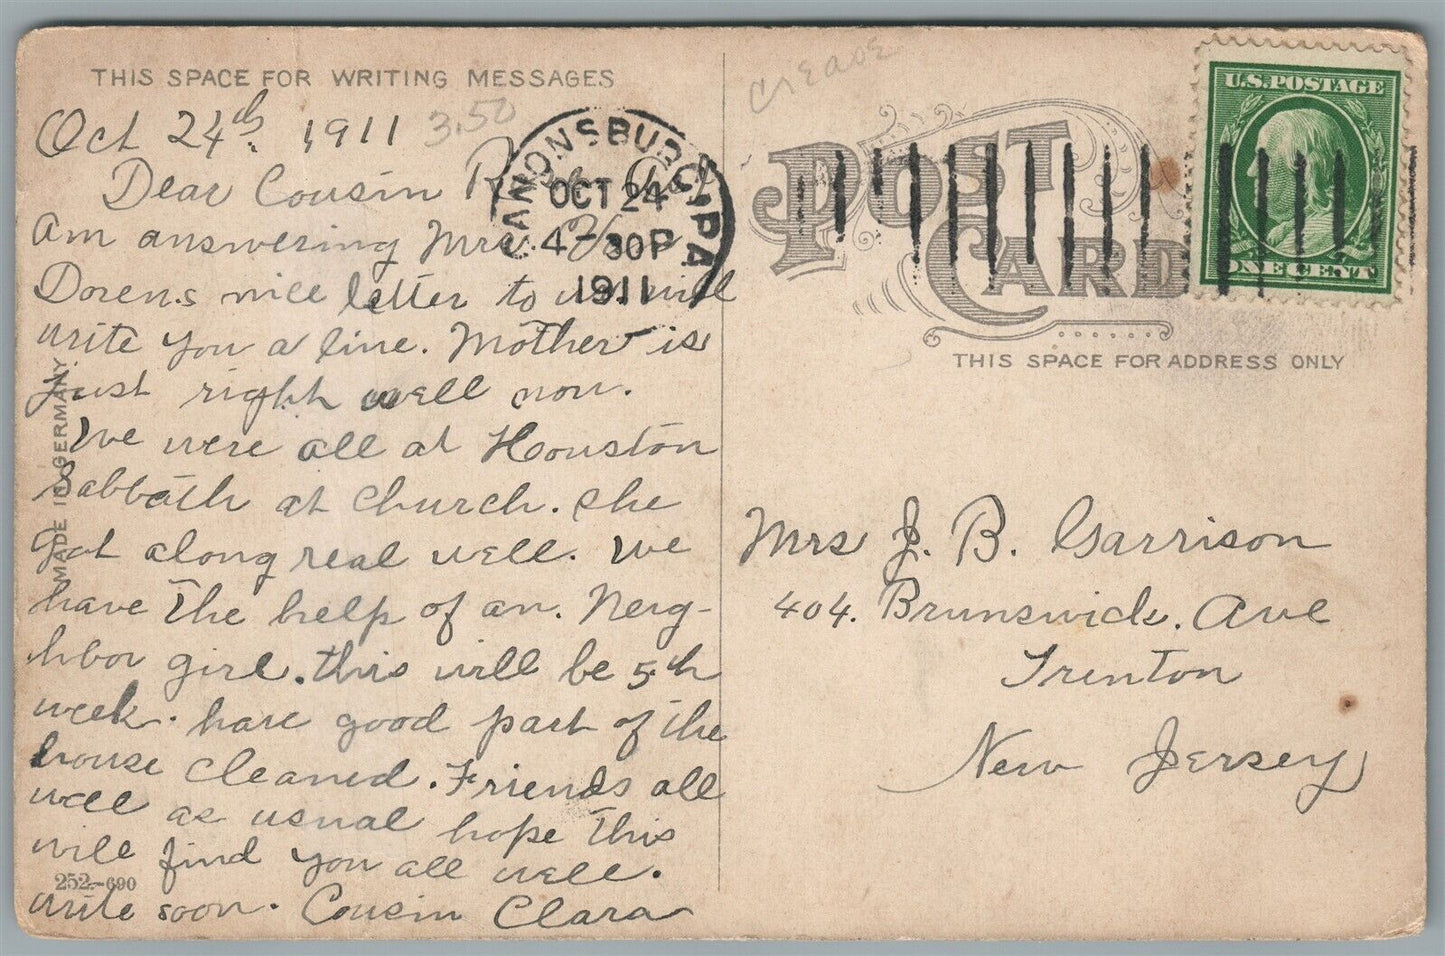 THIS SPACE FOR WRITING MESSAGES
Oct 24th. 1911
3.50
Dear Cousin
Am answering Mrs.
Dorens nice letter to will
write you a line. Mother is
just right well now.
We were all at Houston
Sabbath at Church. She
got along real well. We
have the help of an. Neig-
hbor girl. this will be 5th
week. have good part of the
house cleaned. Friends all
well as usual hope this
will find you all well.
write soon. Cousin Clara
MADE IN GERMANY
252-690
CANONSBURG, PA
OCT 24
4-30P
1911
crease
POST
CARD
THIS SPACE FOR ADDRESS ONLY
U.S. POSTAGE
ONE CENT
Mrs J. B. Garrison
404. Brunswick. Ave
Trenton
New Jersey